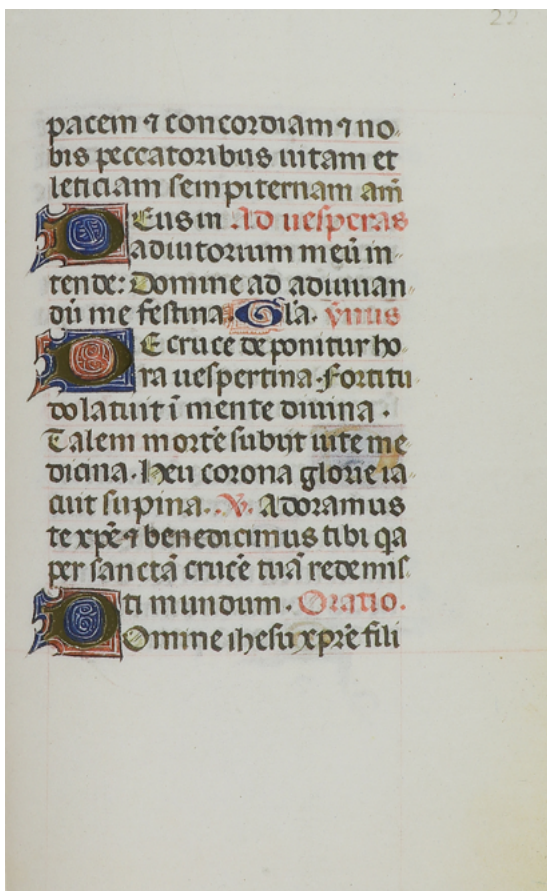 22
pacem ⁊ concordiam ⁊ no
bis peccatoribus uitam et
leticiam sempiternam am̄
DEus in Ad uesperas
adiutorium meū in
tende: Domine ad adiuuan
dū me festina. Gla. ẏmus
DE cruce deponitur ho
ra uespertina. Fortitu
do latuit ī mente diuina.
Talem mortē subijt uite me
dicina. heu corona glorie ia
cuit supina. ℣. Adoramus
te xp̄e ⁊ benedicimus tibi qa
per sanctā crucē tuā redemis
ti mundum. Oratio.
Domine ihesu xpr̄e fili